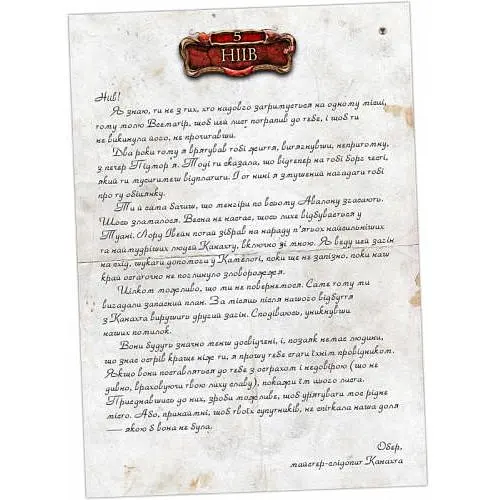 5
НІІВ
Ніів!
Я знаю, ти не з тих, хто надовго затримується на одному місці,
тому молю Всематір, щоб цей лист потрапив до тебе, і щоб ти
не викинула його, не прочитавши.
Два роки тому я врятував тобі життя, витягнувши, непритомну,
з печер Підмор'я. Тоді ти сказала, що відтепер на тобі борг честі,
який ти муситимеш відплатити. І от нині я змушений нагадати тобі
про ту обіцянку.
Ти й сама бачиш, що менгіри по всьому Авалону згасають.
Щось зламалося. Весна не настає, щось лихе відбувається у
Туані. Лорд Івейн потай зібрав на нараду п'ятьох найсильніших
та наймудріших людей Канахту, включно зі мною. Я веду цей загін
на схід, шукати допомоги у Камелоті, поки ще не запізно, поки наш
край остаточно не поглинуло зловорожжя.
Цілком можливо, що ми не повернемося. Саме тому ми
вигадали запасний план. За місяць після нашого відбуття
з Канахта вирушить другий загін. Сподіваюсь, уникнувши
наших помилок.
Вони будуть значно менш досвідчені, і, позаяк немає людини,
що знає острів краще ніж ти, я прошу тебе стати їхнім провідником.
Якщо вони поставляться до тебе з острахом і недовірою (що не
дивно, враховуючи твою лиху славу), покажи їм цього листа.
Приєднавшись до них, зроби можливе, щоб урятувати моє рідне
місто. Або, принаймні, щоб твоїх супутників, не спіткала наша доля
— якою б вона не була.
Обер,
майстер-слідопит Канахта